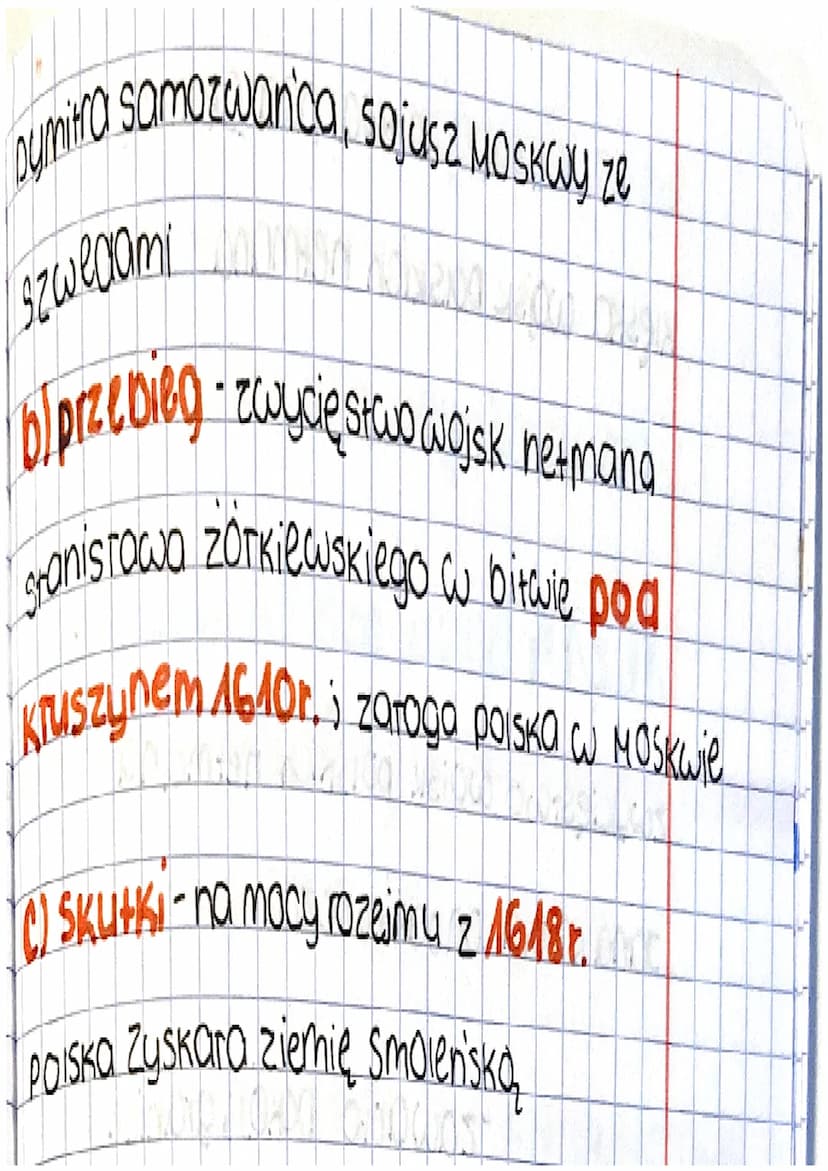 Dymitra Samozwańca, sojusz Moskwy ze
szwedami
b) przebieg - zwycięstwo wojsk hetmana
stanisława żółkiewskiego w bitwie pod
kłuszynem 1610r. ; załoga polska w Moskwie
c) skutki - na mocy rozejmu z 1618r.
polska zyskała ziemię smoleńską